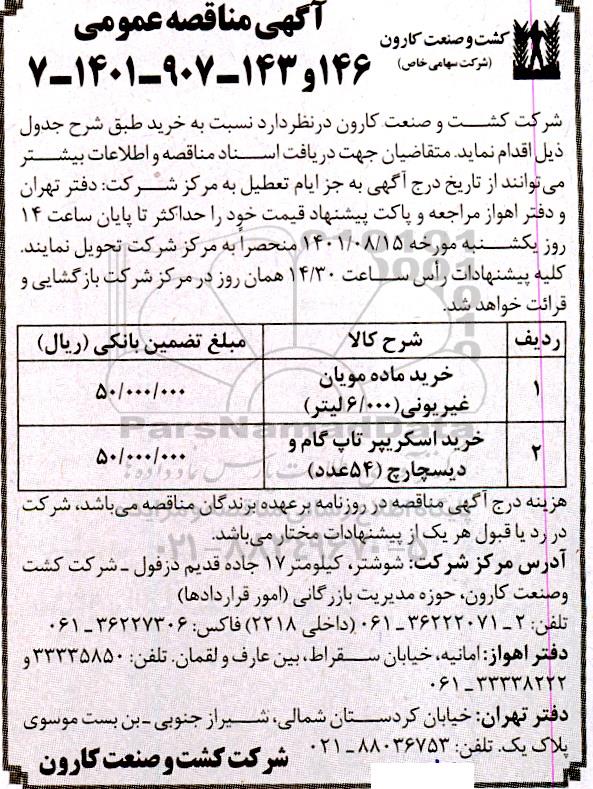 آگهی مناقصه عمومی
کشت و صنعت کارون
(شرکت سهامی خاص)
۱۴۶ و ۱۴۳-۹۰۷-۱۴۰۱-۷
شرکت کشت و صنعت کارون در نظر دارد نسبت به خرید طبق شرح جدول
ذیل اقدام نماید. متقاضیان جهت دریافت اسناد مناقصه و اطلاعات بیشتر
می‌توانند از تاریخ درج آگهی به جز ایام تعطیل به مرکز شرکت: دفتر تهران
و دفتر اهواز مراجعه و پاکت پیشنهاد قیمت خود را حداکثر تا پایان ساعت ۱۴
روز یکشنبه مورخه ۱۴۰۱/۰۸/۱۵ منحصراً به مرکز شرکت تحویل نمایند.
کلیه پیشنهادات رأس ساعت ۱۴/۳۰ همان روز در مرکز شرکت بازگشایی و
قرائت خواهد شد.
ردیف شرح کالا مبلغ تضمین بانکی (ریال)
۱ خرید ماده مویان غیریونی (۶/۰۰۰ لیتر) ۵۰/۰۰۰/۰۰۰
۲ خرید اسکریپر تاپ گام و دیسچارچ (۵۴ عدد) ۵۰/۰۰۰/۰۰۰
ParsNamadData
هزینه درج آگهی مناقصه در روزنامه برعهده برندگان مناقصه می‌باشد، شرکت
در رد یا قبول هر یک از پیشنهادات مختار می‌باشد.
۰۲۱-۸۸۳۴۹۶۷۰-۵
آدرس مرکز شرکت: شوشتر، کیلومتر ۱۷ جاده قدیم دزفول - شرکت کشت
وصنعت کارون، حوزه مدیریت بازرگانی (امور قراردادها)
تلفن: ۲-۳۶۲۲۲۰۷۱-۰۶۱ (داخلی ۲۲۱۸) فاکس: ۳۶۲۲۷۳۰۶-۰۶۱
دفتر اهواز: امانیه، خیابان سقراط، بین عارف و لقمان. تلفن: ۳۳۳۳۵۸۵۰ و
۳۳۳۳۸۲۲۲-۰۶۱
دفتر تهران: خیابان کردستان شمالی، شیراز جنوبی - بن بست موسوی
پلاک یک. تلفن: ۸۸۰۳۶۷۵۳-۰۲۱
شرکت کشت و صنعت کارون